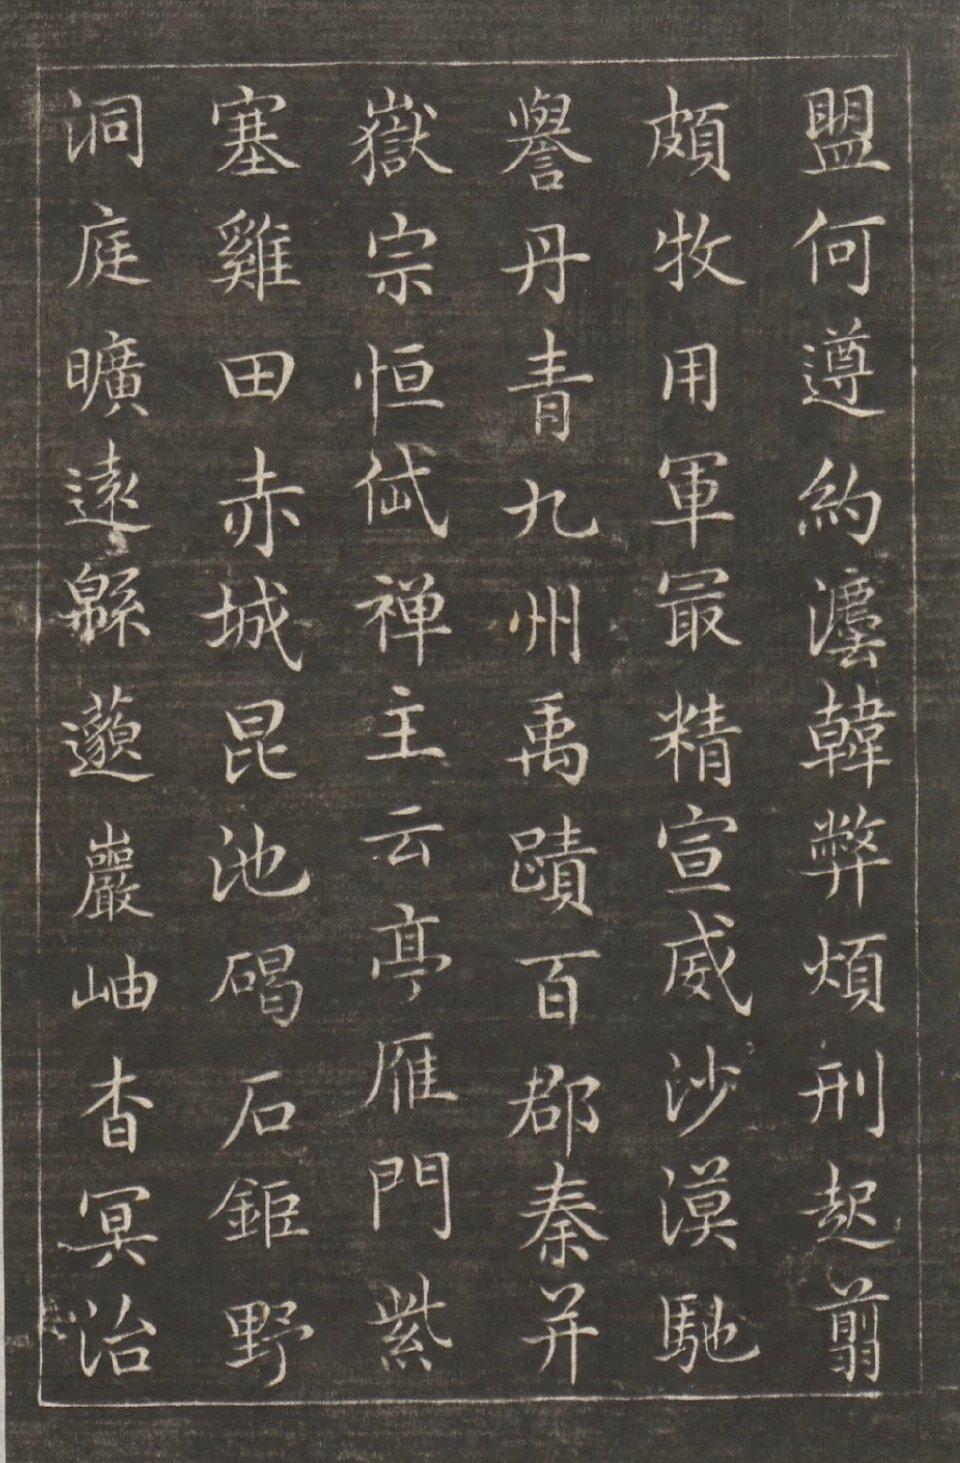 盟何遵約灋韓弊煩刑起翦
頗牧用軍最精宣威沙漠馳
譽丹青九州禹蹟百郡秦并
嶽宗恒岱禪主云亭雁門紫
塞雞田赤城昆池碣石鉅野
洞庭曠遠緜邈巖岫杳冥治